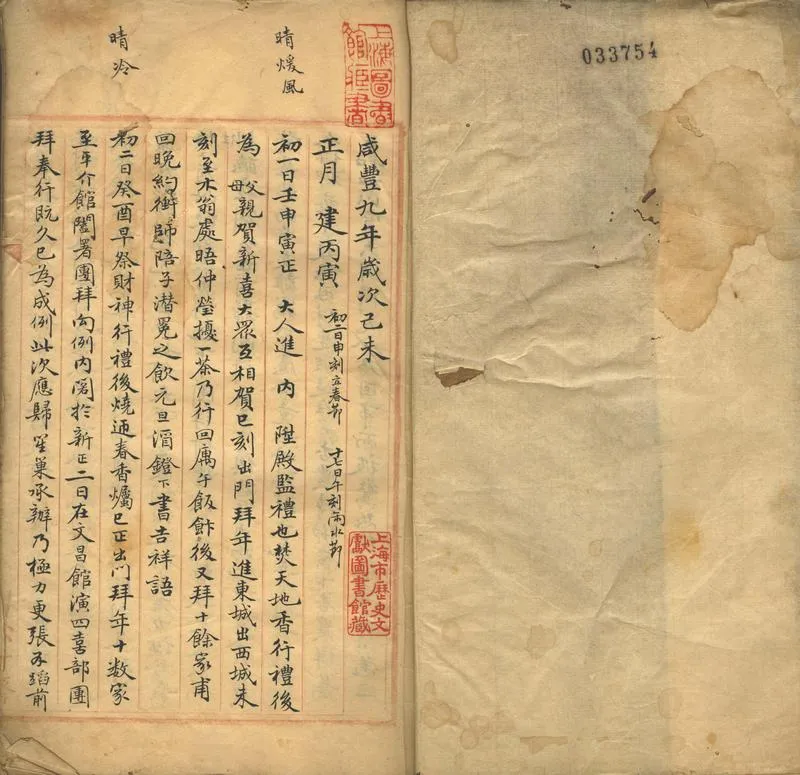 033754
上海圖書
館藏書
咸豐九年歲次己未
正月 建丙寅 初二日申刻立春節 十七日午刻雨水節
上海市歷史文
獻圖書館藏
晴煖風
初一日壬申寅正 大人進 內 陞殿監禮也焚天地香行禮後
為 父母親賀新喜大眾互相賀巳刻出門拜年進東城出西城未
刻至木翁處晤仲瑩擾一茶乃行回寓午飯飰後又拜十餘家甫
回晚約衡師陪子潛冕之飲元旦酒鐙下書吉祥語
晴冷
初二日癸酉早祭財神行禮後燒迎春香燭巳正出門拜年十數家
至平介館闔署團拜向例內閣於新正二日在文昌館演四喜部團
拜奉行既久已為成例此次應歸笙巢承辦乃極力更張不蹈前